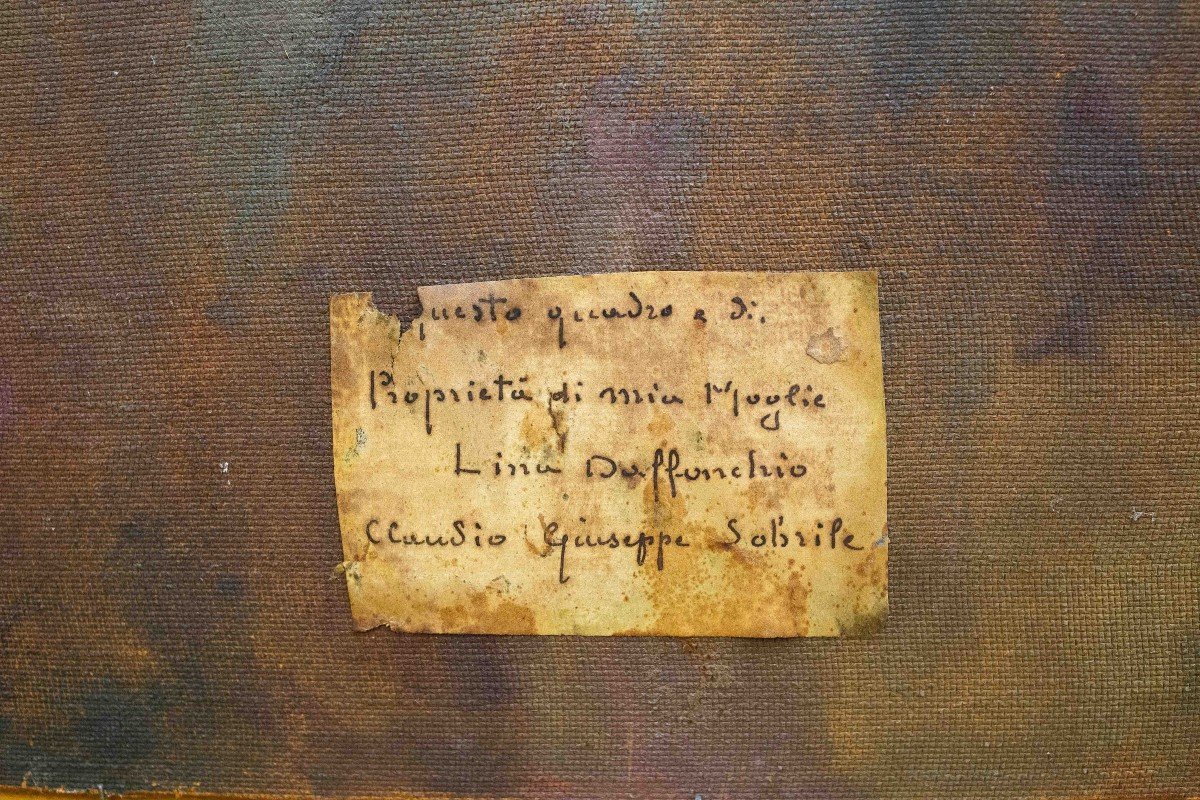 questo quadro e di.
Proprietá di mia Moglie
Lina Daffunchio
Claudio Giuseppe Sobrile